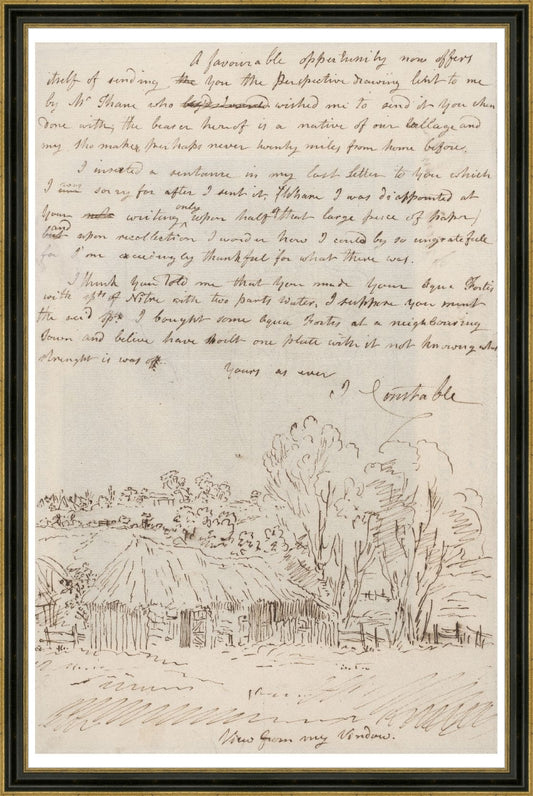 A favourable oppertunity now offers
itself of sending the you the Perspective drawing lent to me
by Mr Thane who wished me to send it you when
done with, the bearer hereof is a native of our village and
my sho maker, perhaps never twenty miles from home before.
I inserted a sentance in my last letter to you which
I was sorry for after I sent it, (Whare I was disappointed at
your writeing only upon half that large peice of paper)
and upon recollection I wonder how I could by so ungratefull
for I am exceedingly thankfull for what there was.
I think you told me that you made your Aqua Fortis
with pts of Nitre with two parts water, I suppose you ment
the I bought some Aqua Fortis at a neighbouring
Town and belive have spoilt one plate with it not knowing what
strenght is was of.
Yours as ever
J Constable
View from my Window.